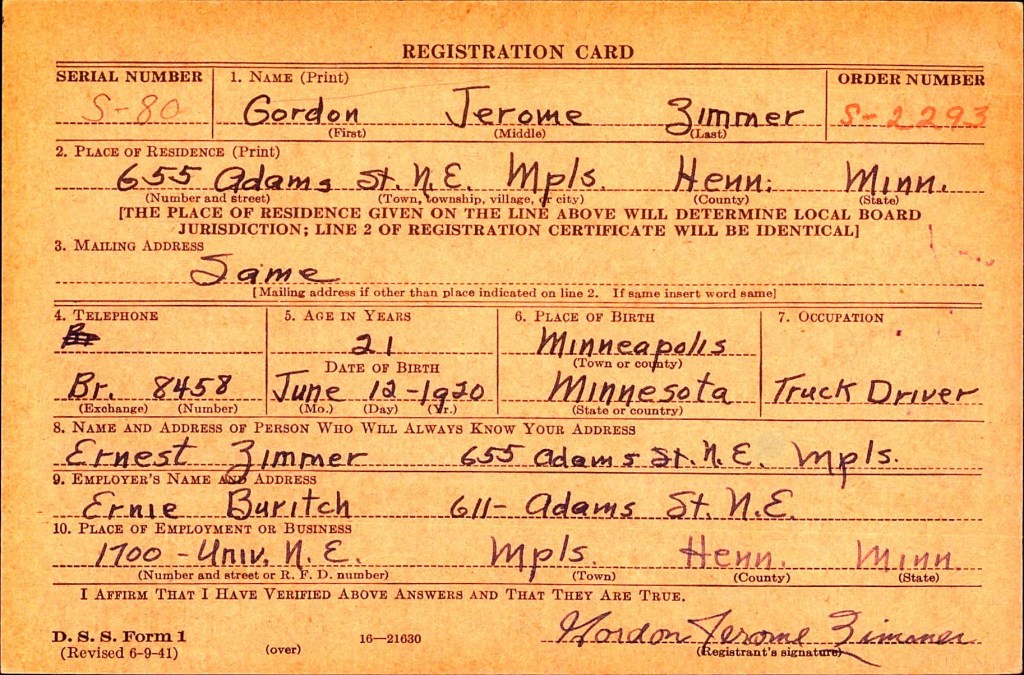 REGISTRATION CARD
SERIAL NUMBER 1. NAME (Print) ORDER NUMBER
S-80 Gordon Jerome Zimmer S-2293
(First) (Middle) (Last)
2. PLACE OF RESIDENCE (Print)
655 Adams St. N.E. Mpls. Henn. Minn.
(Number and street) (Town, township, village, or city) (County) (State)
[THE PLACE OF RESIDENCE GIVEN ON THE LINE ABOVE WILL DETERMINE LOCAL BOARD
JURISDICTION; LINE 2 OF REGISTRATION CERTIFICATE WILL BE IDENTICAL]
3. MAILING ADDRESS
Same
[Mailing address if other than place indicated on line 2. If same insert word same]
4. TELEPHONE 5. AGE IN YEARS 6. PLACE OF BIRTH 7. OCCUPATION
21 Minneapolis
DATE OF BIRTH (Town or county)
Br. 8458 June 12-1920 Minnesota Truck Driver
(Exchange) (Number) (Mo.) (Day) (Yr.) (State or country)
8. NAME AND ADDRESS OF PERSON WHO WILL ALWAYS KNOW YOUR ADDRESS
Ernest Zimmer 655 Adams St. N.E. Mpls.
9. EMPLOYER'S NAME AND ADDRESS
Ernie Buritch 611- Adams St. N.E.
10. PLACE OF EMPLOYMENT OR BUSINESS
1700 - Univ. N.E. Mpls. Henn. Minn.
(Number and street or R. F. D. number) (Town) (County) (State)
I AFFIRM THAT I HAVE VERIFIED ABOVE ANSWERS AND THAT THEY ARE TRUE.
Gordon Jerome Zimmer
D. S. S. Form 1 16—21630 (Registrant's signature)
(Revised 6-9-41) (over)